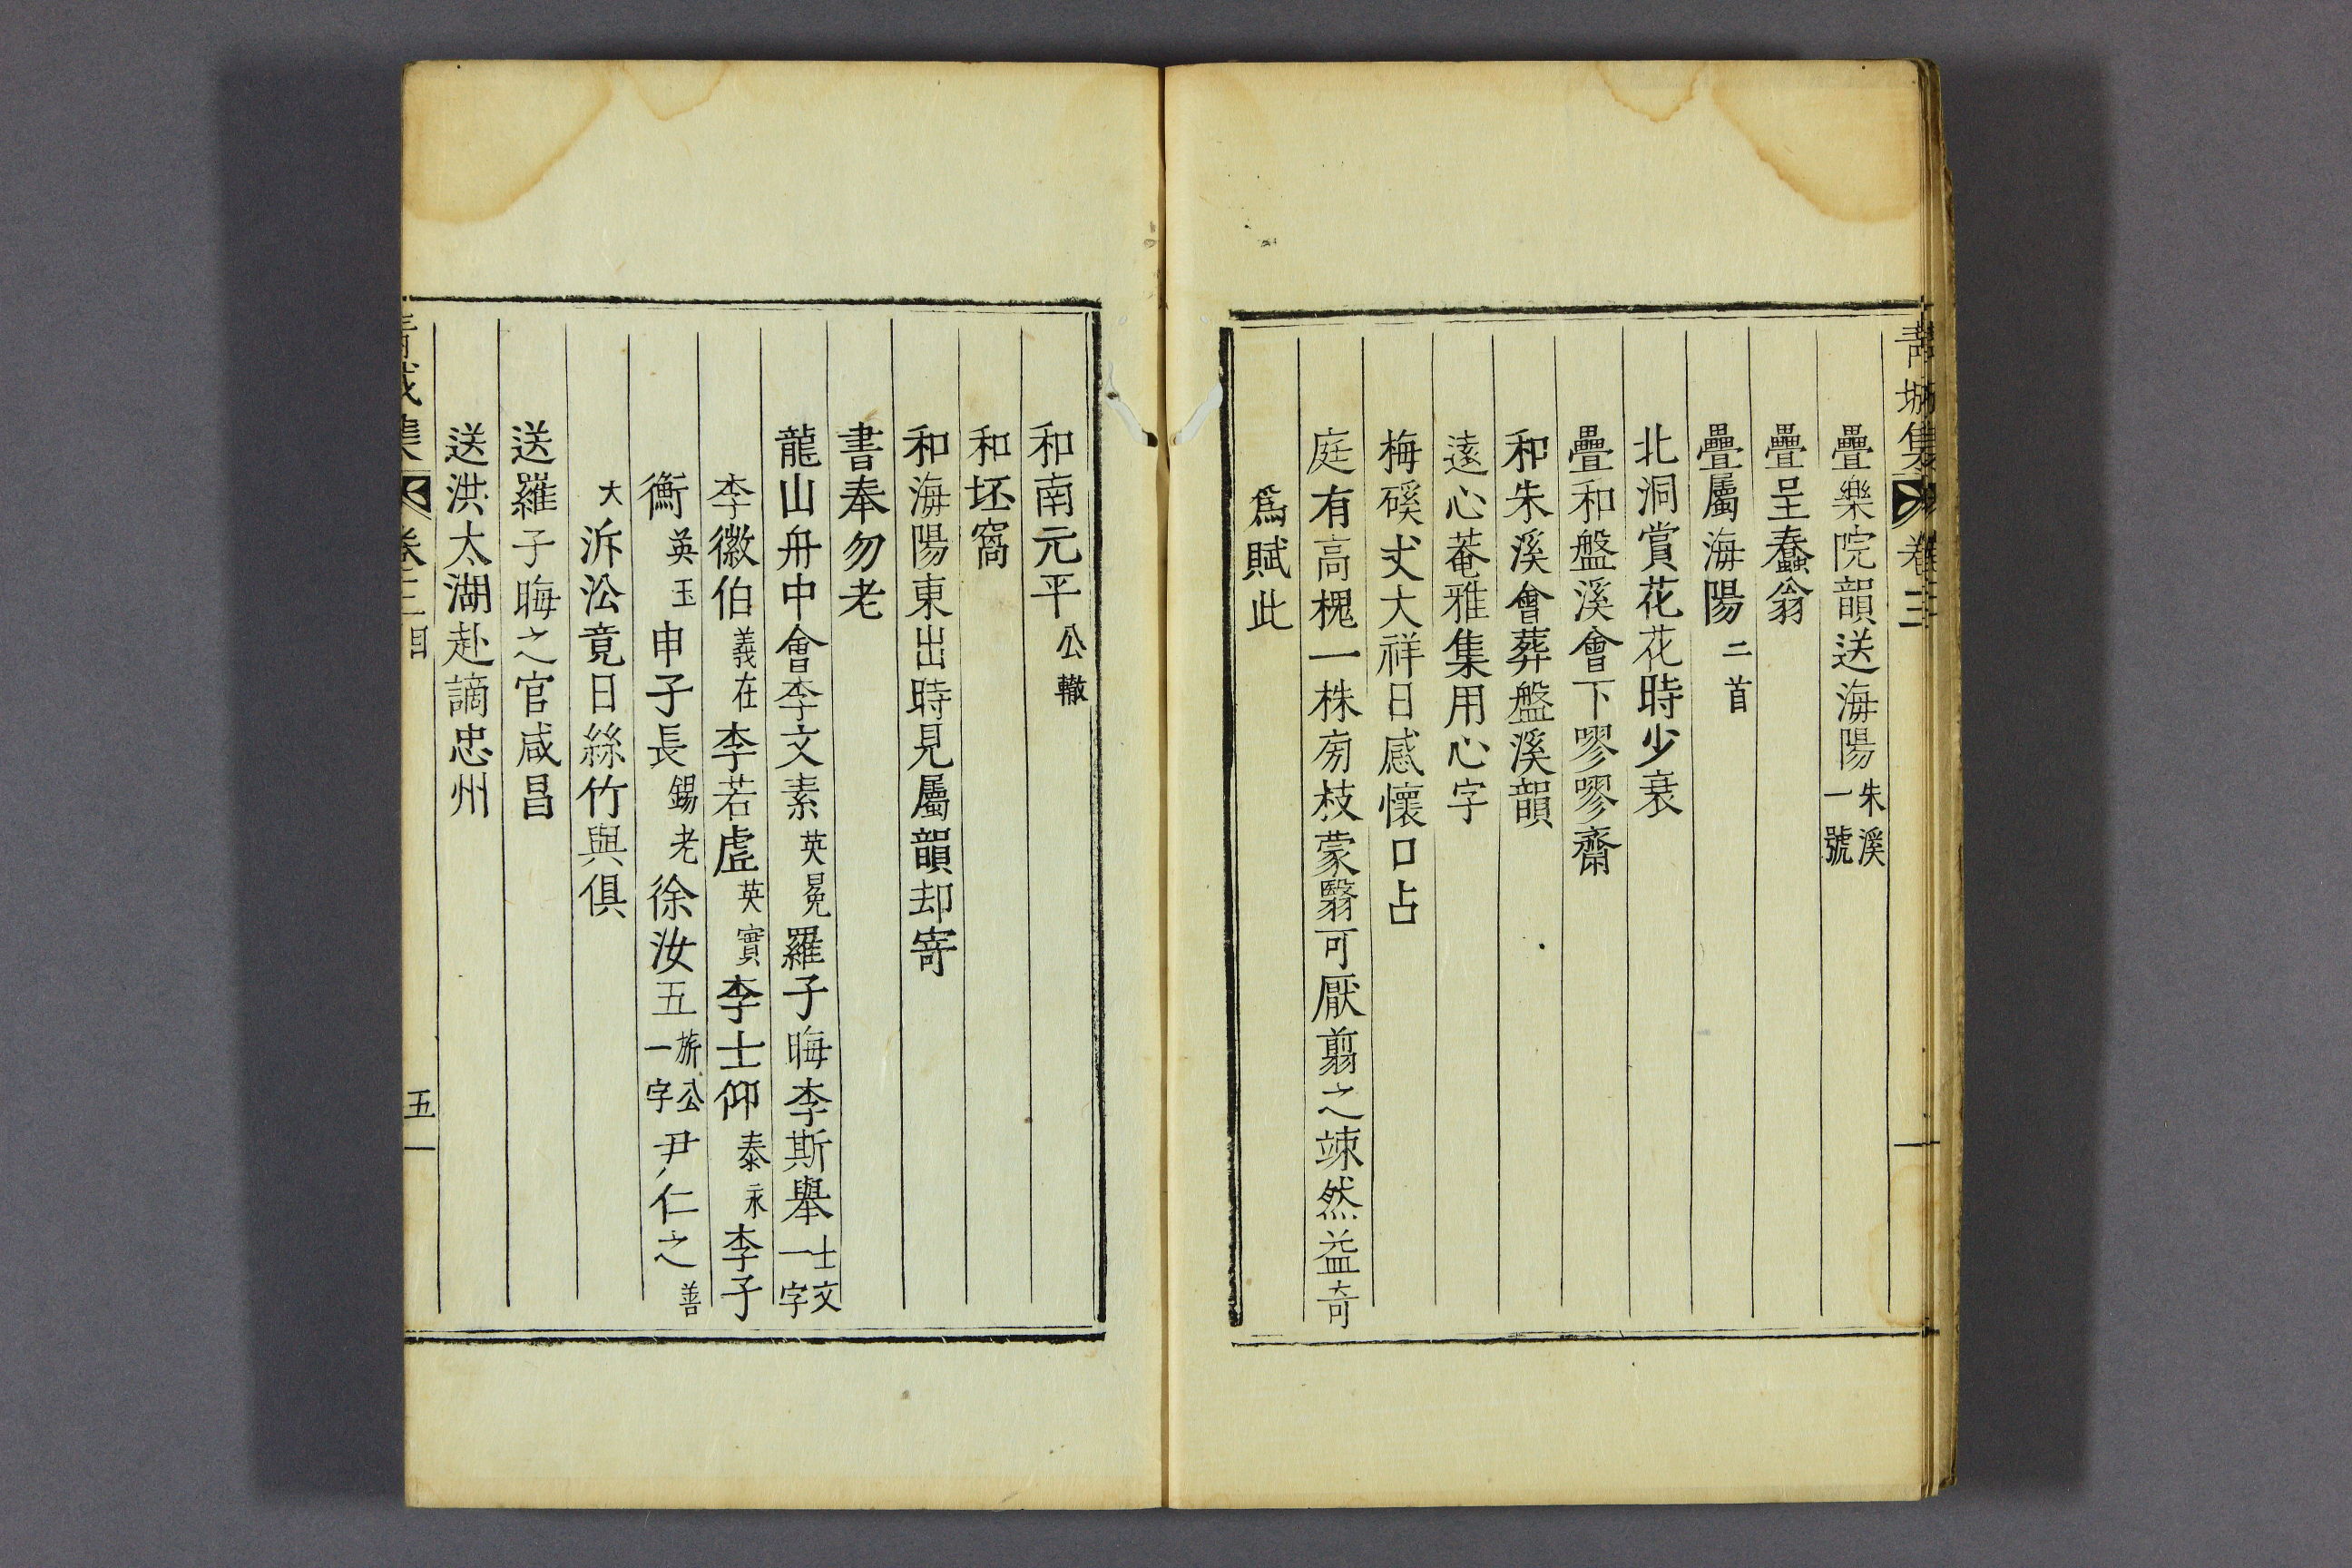 靑城集 卷三
疊樂院韻送海陽 朱溪一號
疊呈蠢翁
疊屬海陽 二首
北洞賞花花時少衰
疊和盤溪會下嘐嘐齋
和朱溪會葬盤溪韻
遠心菴雅集用心字
梅磎丈大祥日感懷口占
庭有高槐一株旁枝蒙翳可厭翦之竦然益奇
爲賦此
和南元平 公轍
和坯窩
和海陽東出時見屬韻却寄
書奉勿老
龍山舟中會李文素 英冕 羅子晦李斯舉 士文一字
李徽伯 義在 李若虗 英實 李士仰 泰永 李子
衡 英玉 申子長 錫老 徐汝五 旂公一字 尹仁之 善
大 泝㳂竟日絲竹與俱
送羅子晦之官咸昌
送洪太湖赴謫忠州
靑城集 卷三目 五